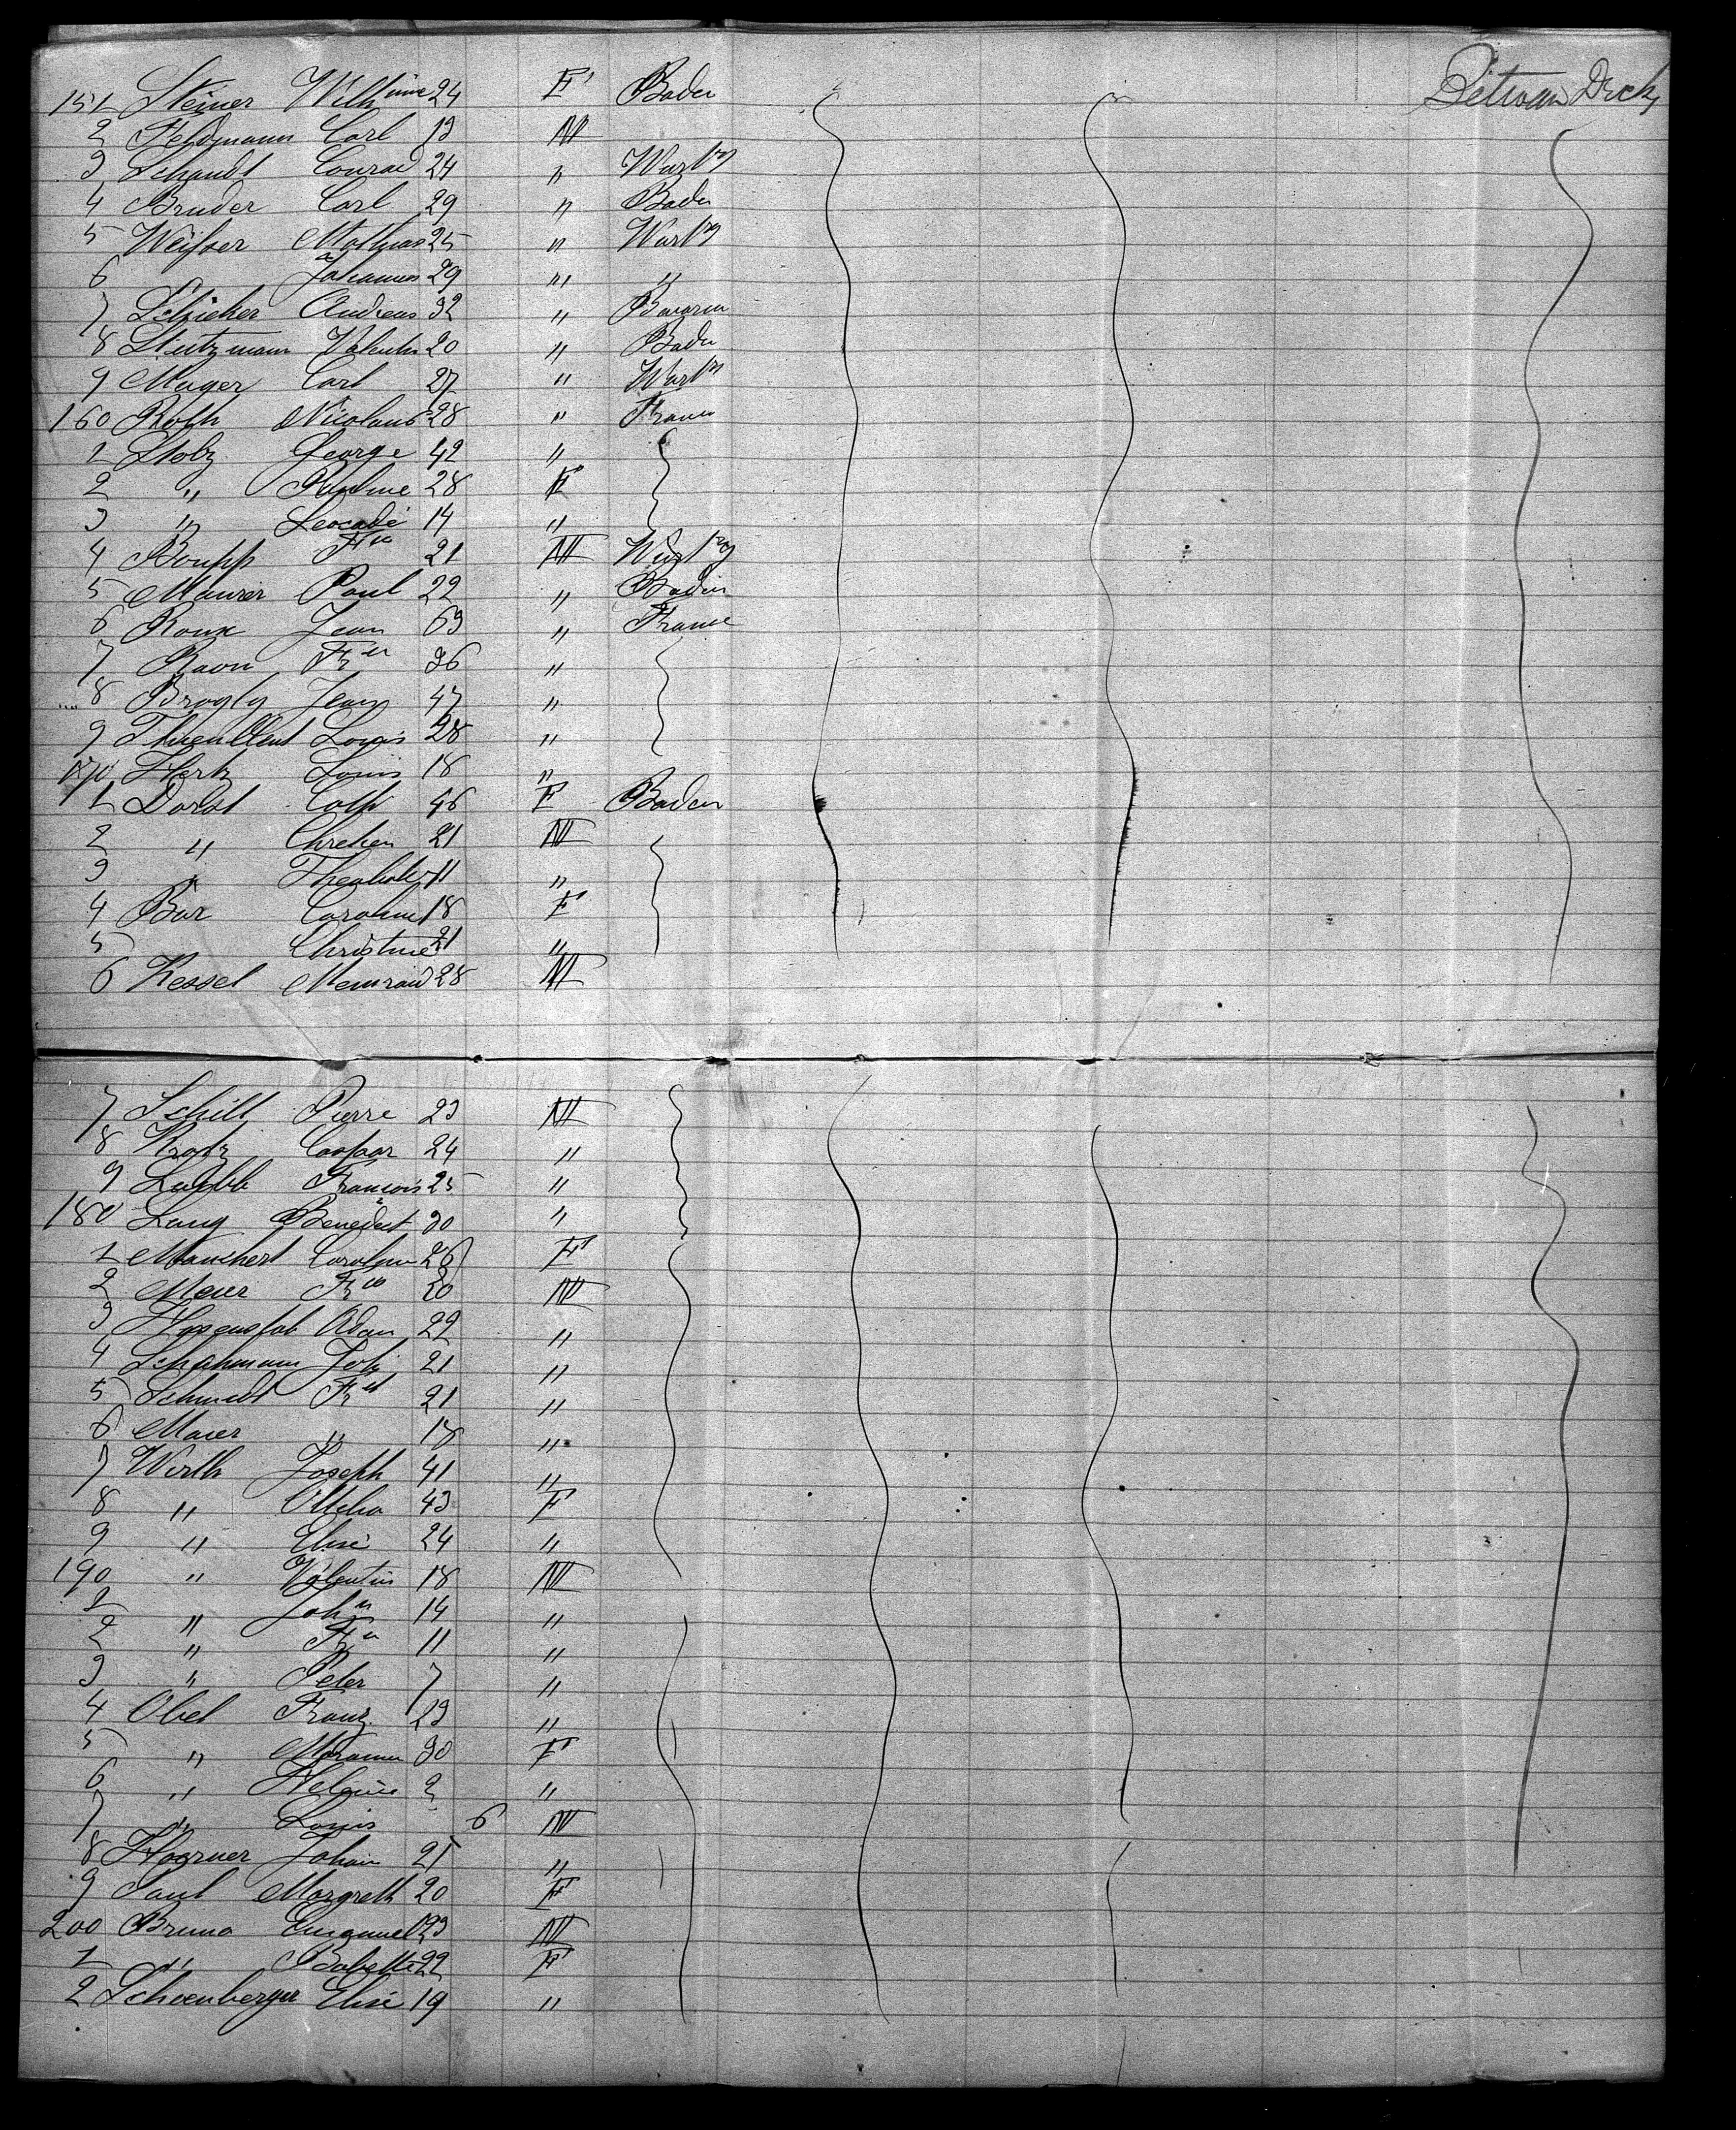 151 Steiner Wilh mine 24 F Baden Between Deck
2 Feldmann Carl 19 M
3 Schandt Conrad 24 " Wurtbg
4 Bruder Carl 29 " Baden
5 Weisser Mathias 25 " Wurtbg
6 Johannes 29 " "
7 Andreas 32 " Bavaria
8 Stutzmann Valentin 20 " Baden
9 Mager Carl 27 " Wurtbg
160 Roth Nicolaus 28 " France
1 Stolz George 42 "
2 " Pauline 28 F
3 " Leocadi 14 "
4 Boupp 21 M Wurtbg
5 Maurer Paul 22 " Baden
6 Roux Jean 63 " France
7 Ravn 36 "
8 Brogly Jean 47 "
9 Louis 28 "
170 Hertz Louis 18 "
1 Dorst Cath 46 F Baden
2 " Chretien 21 M
3 " 11 "
4 Bar Caroline 18 F
5 Christine 21 "
6 Kessel Meinrad 28 M
7 Schill Pierre 23 M
8 Kratz Caspar 24 "
9 François 25 "
180 Lang Benedict 30 "
1 Carolina 26 F
2 Meier 20 M
3 Adam 22 "
4 Joh 21 "
5 Schmidt 21 "
6 Maier " 18 "
7 Wirth Joseph 41 "
8 " 43 F
9 " Elise 24 "
190 " Valentin 18 M
1 " Joh n 14 "
2 " 11 "
3 " Peter 7 "
4 Obel Franz 29 "
5 " 30 F
6 " Helene 2 "
7 " Louis 6 M
8 Hoerner Johann 21 "
9 Paul Margreth 20 F
200 Bruno Emanuel 23 M
1 " Babette 22 F
2 Schoenberger Elise 19 "